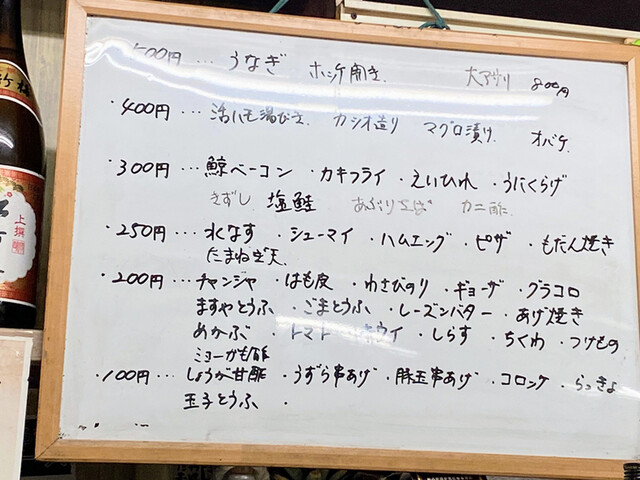 500円 … うなぎ ホッケ開き 大アサリ 800円
・400円 … 活ハモ湯びき カツオ造り マグロ漬け オバケ
・300円 … 鯨ベーコン ・カキフライ ・えいひれ ・うにくらげ
きずし 塩鮭 あぶりさば カニ酢
・250円 … 水なす ・シューマイ ・ハムエッグ ・ピザ ・もだん焼き
たまねぎ天
・200円 … チャンジャ ・はも皮 ・わさびのり ・ギョーザ ・グラコロ
ますやとうふ ・ごまとうふ ・レーズンバター ・あげ焼き
めかぶ ・トマト ・キウイ ・しらす ・ちくわ ・つけもの
ミョーガ甘酢
・100円 … しょうが甘酢 ・うずら串あげ ・豚玉串あげ ・コロッケ ・らっきょ
玉子とうふ ・
上撰